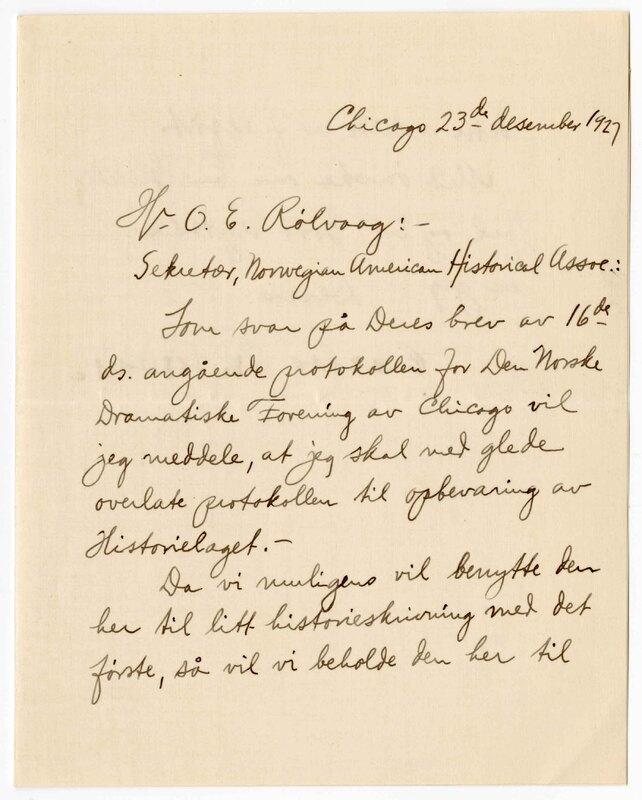 Chicago 23de desember 1927
Hr. O. E. Rølvaag:-
Sekretær, Norwegian American Historical Assoc.:
Som svar på Deres brev av 16de
ds. angående protokollen for Den Norske
Dramatiske Forening av Chicago vil
jeg meddele, at jeg skal med glede
overlate protokollen til opbevaring av
Historielaget.-
Da vi muligens vil benytte den
her til litt historieskrivning med det
første, så vil vi beholde den her til